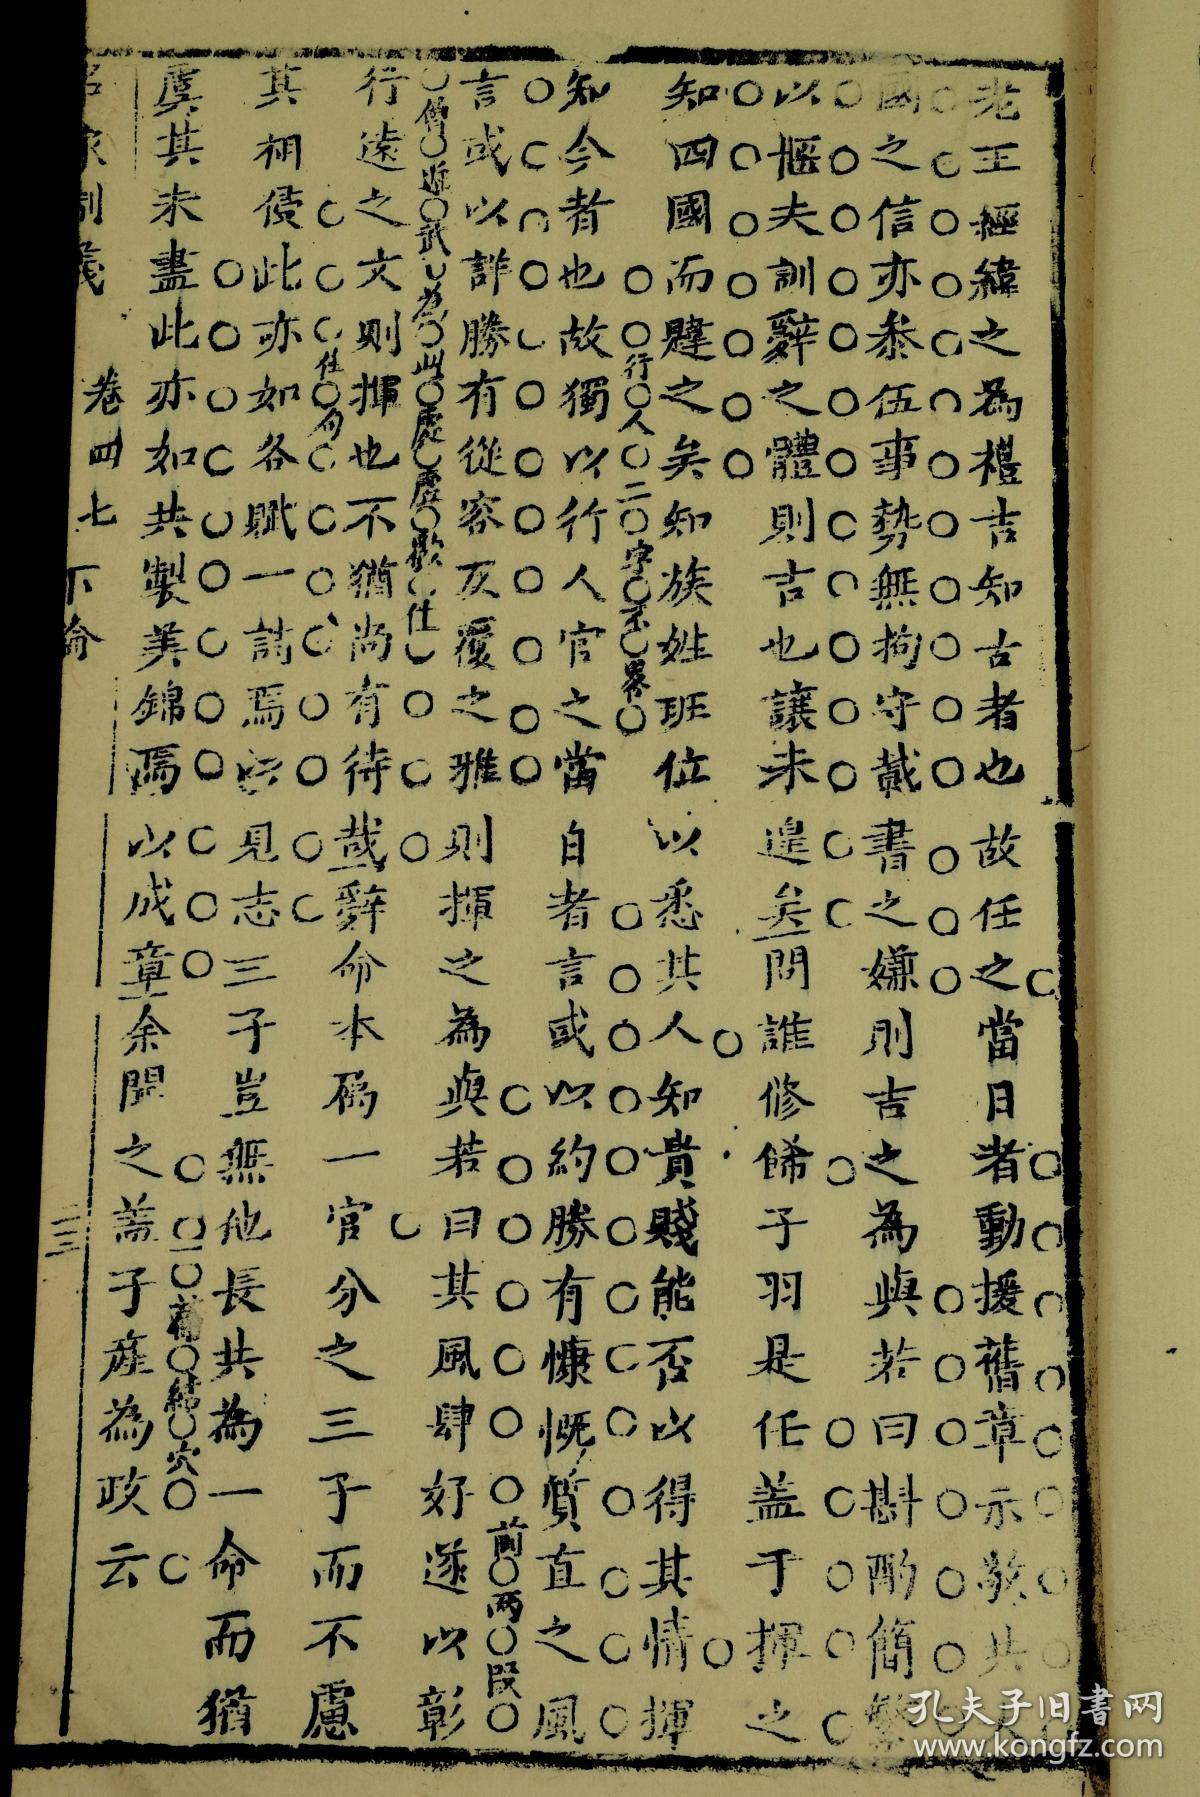 老王經緯之為禮吉知古者也故任之當日者動援舊章示敬共人
國之信亦叅伍事勢無拘守載書之嫌則吉之為與若曰斟酌簡
以愜夫訓辭之體則吉也讓未遑矣問誰修餙子羽是任蓋于揮之
知四國而韙之矣知族姓班位以悉其人知貴賤能否以得其情揮
行人二字不畧
知今者也故獨以行人官之當自者言或以約勝有慷慨質直之風
言或以詳勝有從容反覆之雅則揮之為與若曰其風肆好遂以彰
前兩段
行遠之文則揮也不猶尚有待哉辭命本爲一官分之三子而不慮
其相債此亦如各賦一詩焉以見志三子豈無他長共為一命而猶
虞其未盡此亦如共製美錦焉以成章余聞之蓋子産為政云
卷四 七 下論
三三
孔夫子旧書网
www.kongfz.com